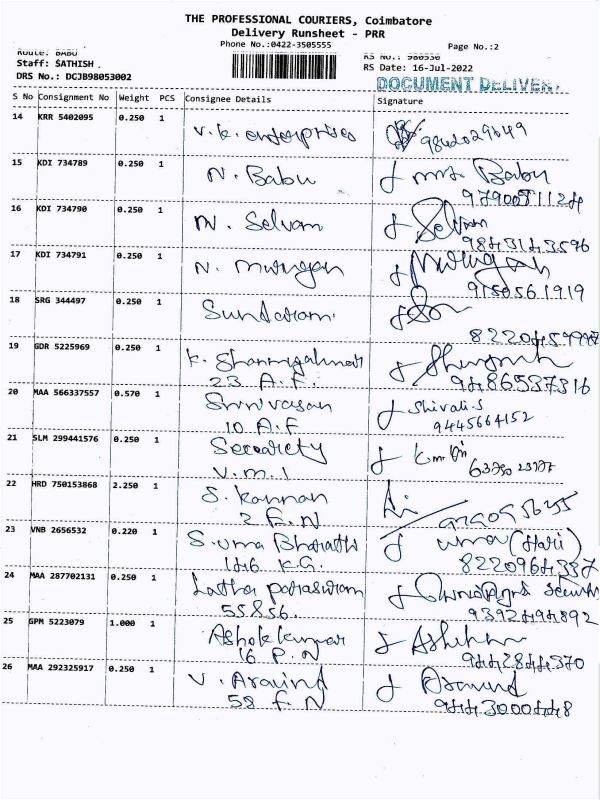 THE PROFESSIONAL COURIERS, Coimbatore
Delivery Runsheet - PRR
Phone No.:0422-3505555
Page No.:2
Route: BABU
Staff: SATHISH .
DRS No.: DCJB98053002
RS No.: 980530
RS Date: 16-Jul-2022
DOCUMENT DELIVERY
S No Consignment No Weight PCS Consignee Details Signature
14 KRR 5402095 0.250 1 V. K. enterprises
15 KDI 734789 0.250 1 N. Babu Babu
16 KDI 734790 0.250 1 N. Selvam Selvam
9843143596
17 KDI 734791 0.250 1 N. Murugan Murugan
9150561919
18 SRG 344497 0.250 1 Sundaram
19 GDR 5225969 0.250 1 K. Shanmugalnar
23 A.F. 9486537316
20 MAA 566337557 0.570 1 Srinivasan Shivali.S
10 A.F 9445664152
21 SLM 299441576 0.250 1 Secretary
V.M.1
22 HRD 750153868 2.250 1 S. Kannan
2 F.N
23 VNB 2656532 0.220 1 S. Uma Bharathi uma (Hari)
146 K.G. 8220964387
24 MAA 287702131 0.250 1 Latha
55856. 9392494892
25 GPM 5223079 1.000 1 Ashok kumar
16 P.N 9442844370
26 MAA 292325917 0.250 1 V. Aravind Aravind
58 F.N 9443000448